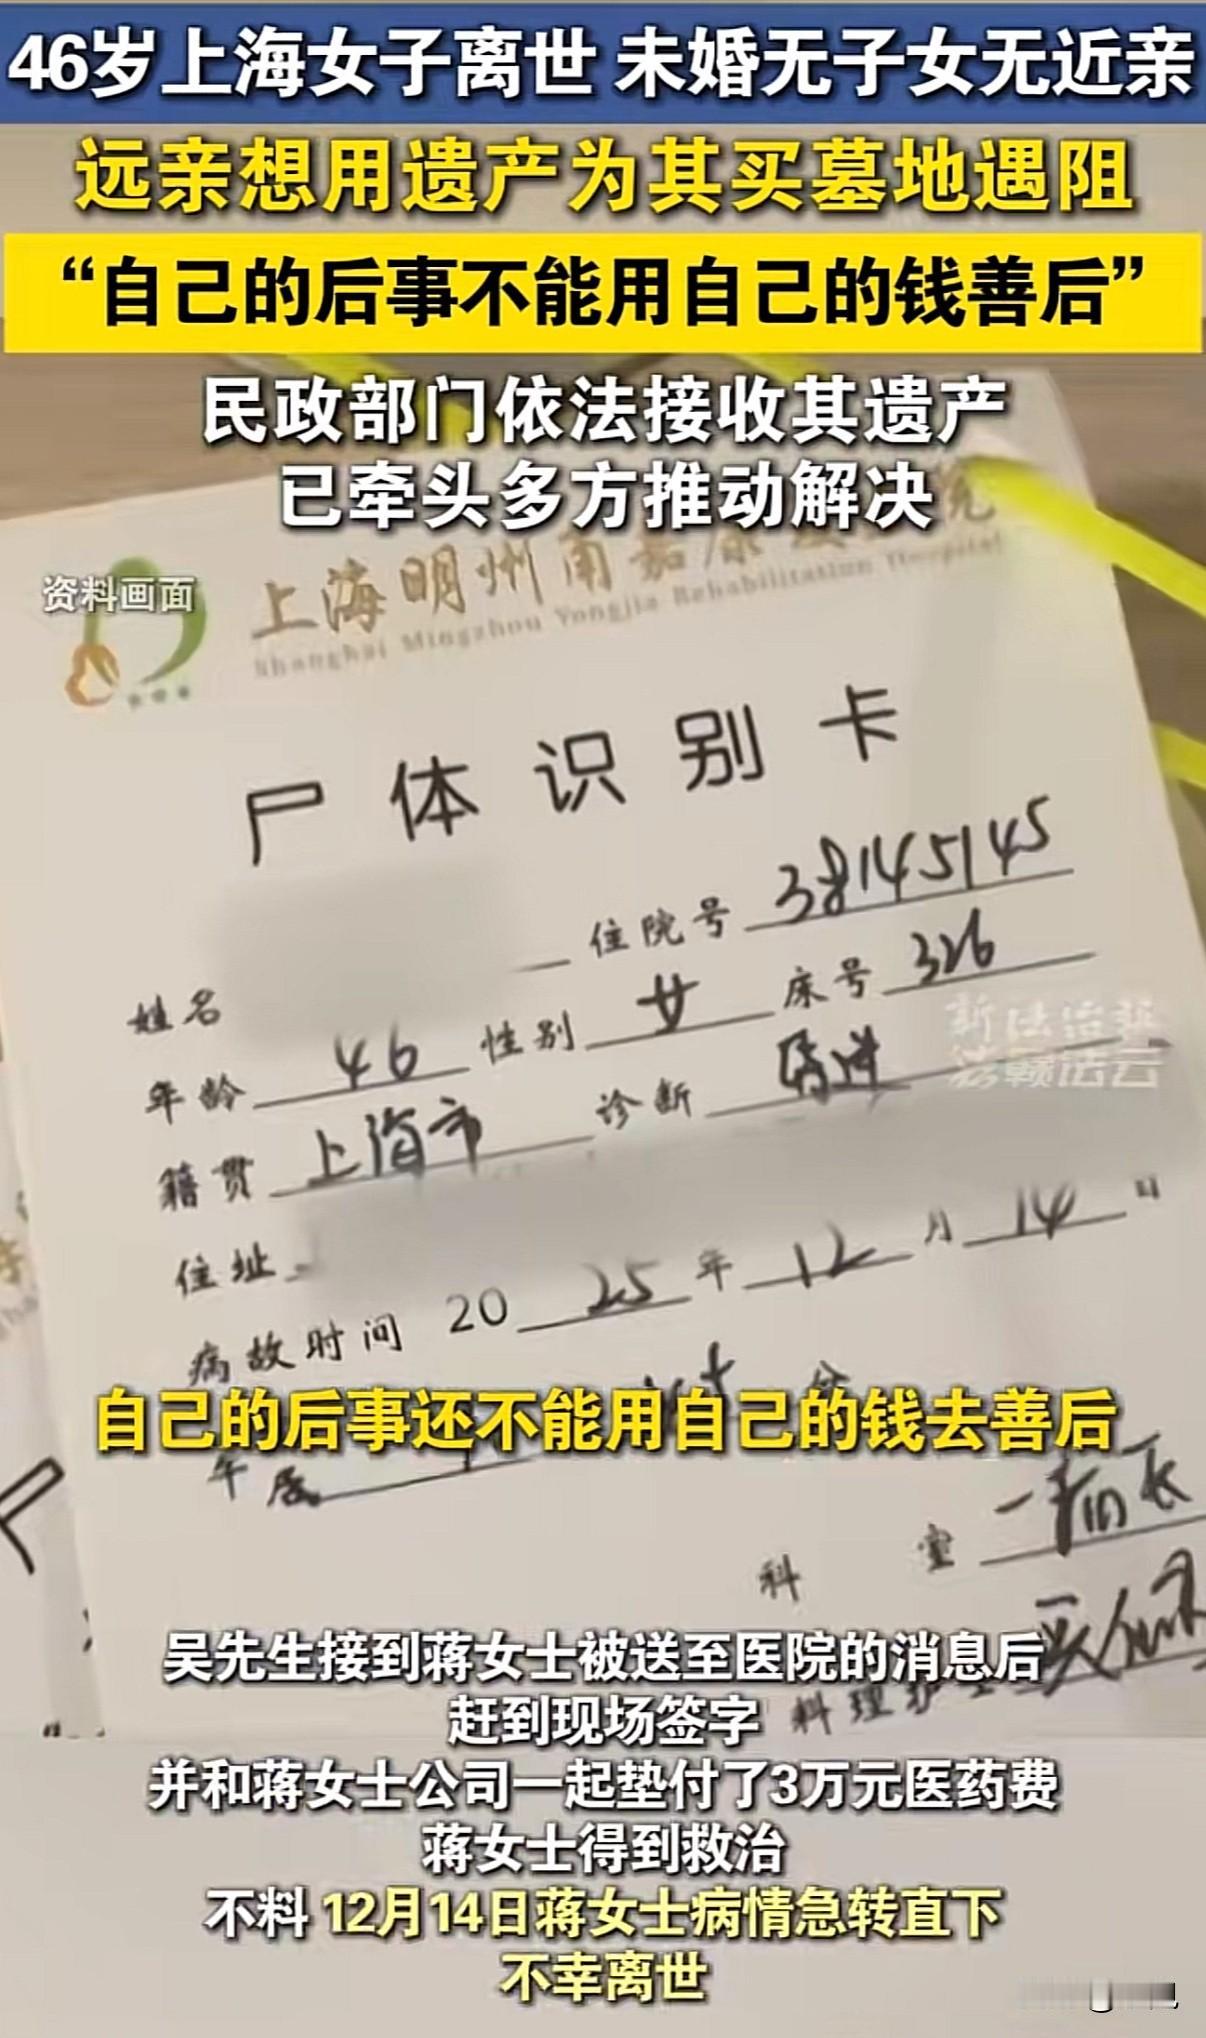 46岁上海女子离世 未婚无子女无近亲
远亲想用遗产为其买墓地遇阻
“自己的后事不能用自己的钱善后”
民政部门依法接收其遗产
已牵头多方推动解决
资料画面
上海明州甬嘉康复医院
Shanghai Mingzhou Yongjia Rehabilitation Hospital
尸体识别卡
姓名 住院号 38145145
年龄 46 性别 女 床号 326
籍贯 上海市 诊断
住址
病故时间 20 25 年 12 月 14 日
自己的后事还不能用自己的钱去善后
科 室
吴先生接到蒋女士被送至医院的消息后
赶到现场签字
并和蒋女士公司一起垫付了3万元医药费
蒋女士得到救治
不料 12月14日蒋女士病情急转直下
不幸离世